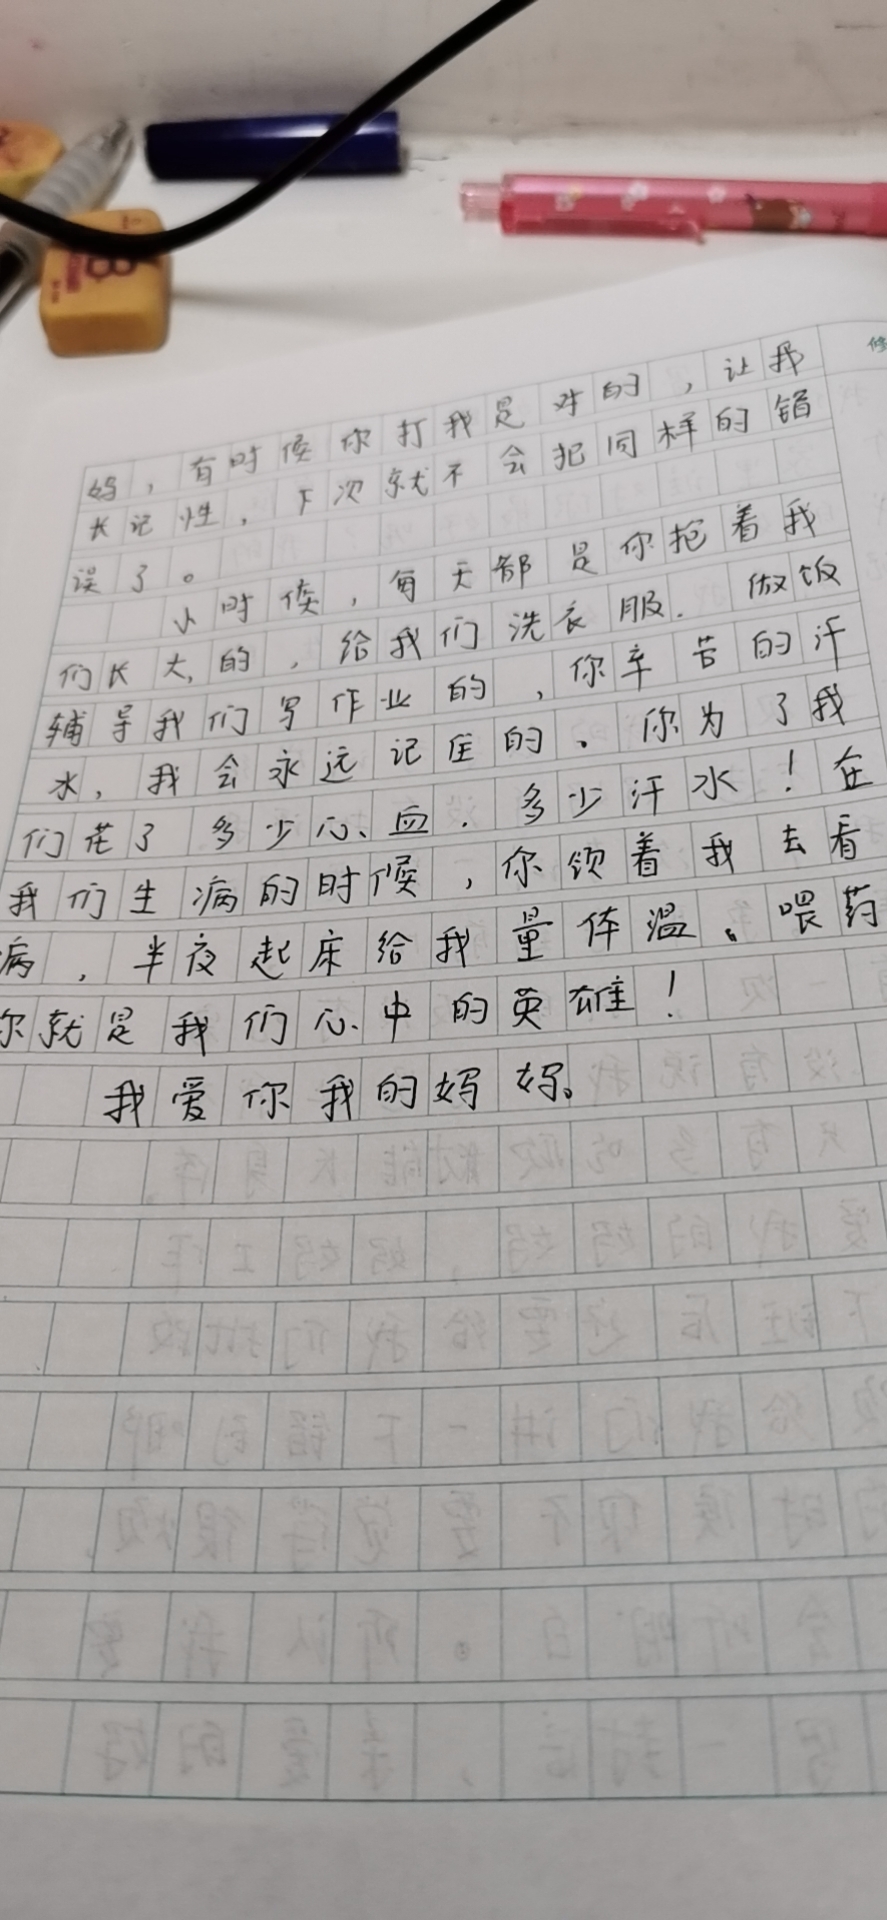 修
妈，有时候你打我是对的，让我
长记性，下次就不会犯同样的错
误了。
小时候，每天都是你抱着我
们长大,的，给我们洗衣服.做饭
辅导我们写作业的，你辛苦的汗
水，我会永远记住的。你为了我
们花了多少心、血.多少汗水！在
我们生病的时候，你领着我去看
病，半夜起床给我量体温。喂药
你就是我们心中的英雄！
我爱你我的妈妈。